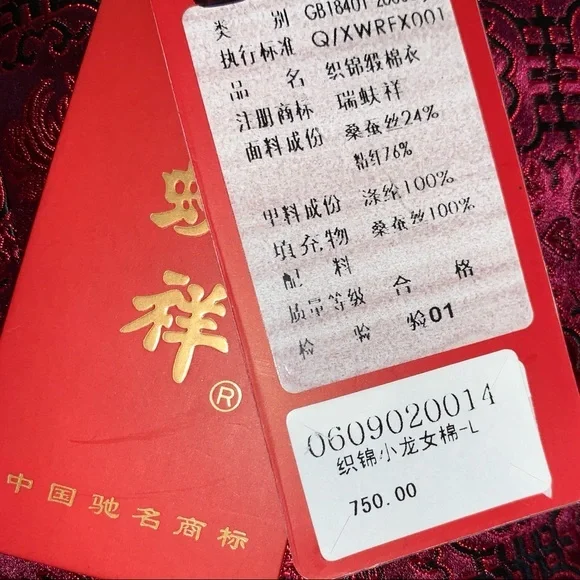 类 别 GB18401
执行标准 Q/XWRFX001
品 名 织锦缎棉衣
注册商标 瑞蚨祥
面料成份 桑蚕丝24%
粘红76%
里料成份 涤纶100%
填充物 桑蚕丝100%
配 料
质量等级 合 格
检 验 验01
0609020014
织锦小龙女棉-L
750.00
蚨
祥
®
中国驰名商标